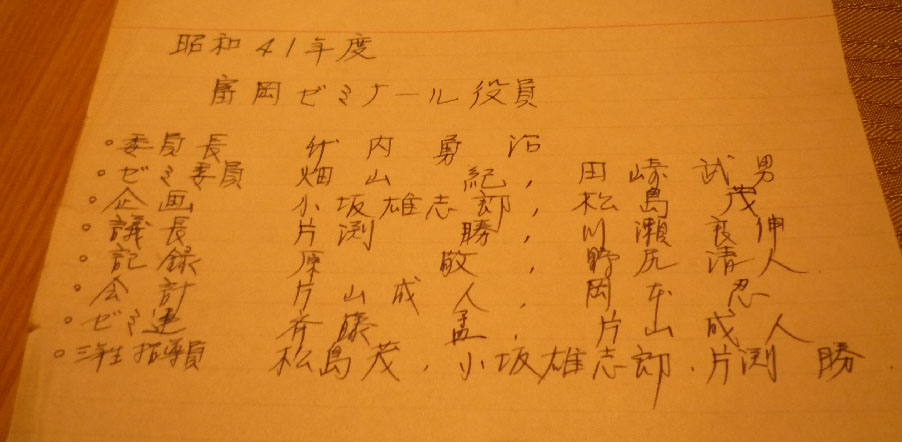 昭和41年度
富岡ゼミナール役員
。委員長 竹内勇治
。ゼミ委員 畑山 紀, 田崎武男
。企画 小坂雄志郎, 松島 茂
。議長 片渕 勝, 川瀬良伸
。記録 原 敬, 野尻清人
。会計 片山成人, 岡本 忍
。ゼミ連 斉藤 孟, 片山成人
。三年生指導員 松島茂, 小坂雄志郎, 片渕 勝